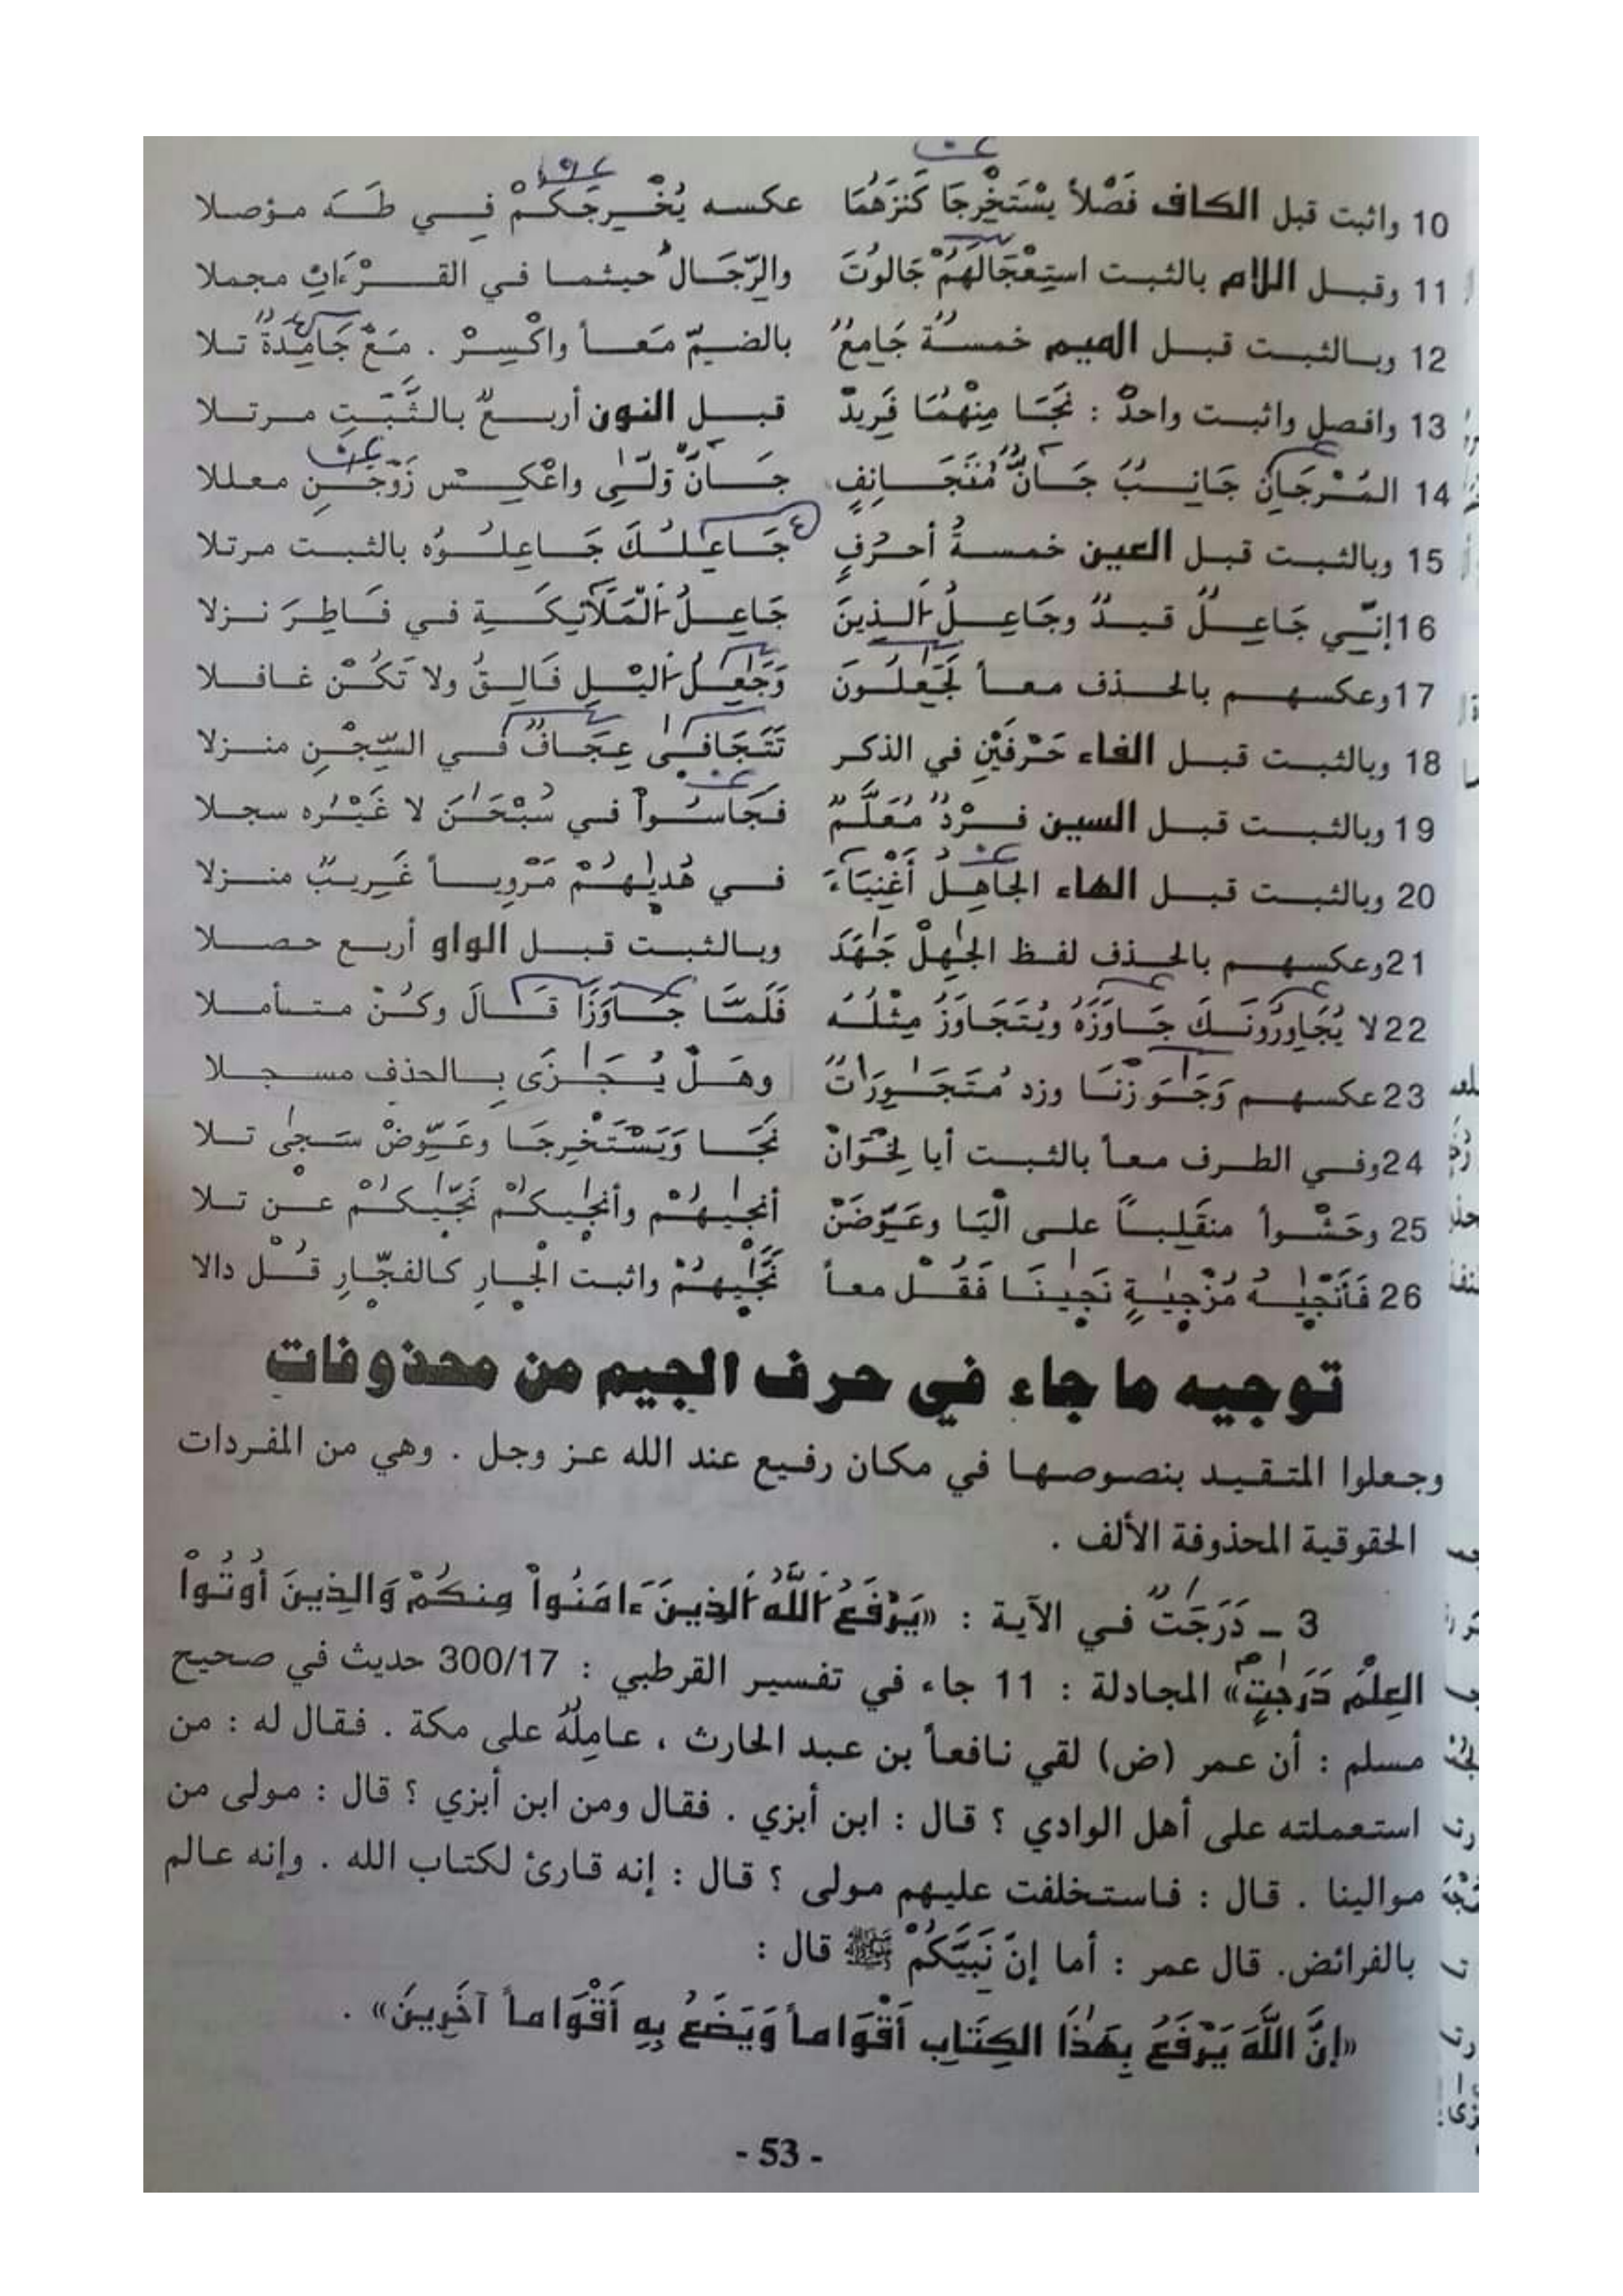 10 واثبت قبل الكاف فَصْلاً يسْتَخْرِجَا كَنزَهُمَا عكسه يُخْرِجَكُمْ فِي طَهَ مؤصلا
11 وقبل اللام بالثبت استِعْجَالَهُمْ جَالُوتَ والرِّجَال حيثما في القرْءَانِ مجملا
12 وبالثبت قبل الميم خمسةٌ جَامِعُ بالضمِّ مَعاً واكْسِرْ . مَعْ جَامِدَةً تلا
13 وافصل واثبت واحدٌ : نَجَا مِنْهُمَا فَرِيدٌ قبل النون أربعٌ بالثَّبْتِ مرتلا
14 المُرْجَانِ جَانِبَ جَانٌّ مُتَجَانِفٍ جَانٌّ وَلّىٰ واعْكِس زَوْجَٰنِ معللا
15 وبالثبت قبل العين خمسةُ أحرُفٍ جَاعِلُكَ جَاعِلُوه بالثبت مرتلا
16 إنِّي جَاعِلٌ قيدٌ وجَاعِلُ الذِينَ جَاعِلُ المَلَائِكَةِ في فَاطِرَ نزلا
17 وعكسهم بالحذف معاً لَجَٰعِلُونَ وَجَٰعِلُ اليْلِ فَالِقُ ولا تَكُنْ غافلا
18 وبالثبت قبل الفاء حَرْفَيْنِ في الذكر تَتَجَافَىٰ عِجَافٌ في السِّجْنِ منزلا
19 وبالثبت قبل السين فرْدٌ مُعَلَّمٌ فَجَاسُواْ في سُبْحَٰنَ لا غَيْرُه سجلا
20 وبالثبت قبل الهاء الجَاهِلُ أَغْنِيَاءَ في هُدَيٰهُمْ مَرْوِياً غَرِيبٌ منزلا
21 وعكسهم بالحذف لفظ الجَٰهِلْ جَٰهَدَ وبالثبت قبل الواو أربع حصلا
22 لا يُجَاوِرُونَكَ جَاوَزَهُ ويُتَجَاوَزُ مِثْلُهُ فَلَمَّا جَاوَزَا قَالَ وكُنْ متأملا
23 عكسهم وَجَٰوَزْنَا وزد مُتَجَٰوِرَاتٌ وهَلْ يُجَٰزَى بالحذف مسجلا
24 وفي الطرف معاً بالثبت أبا لِخْوَانْ نَجَا وَيَسْتَخْرِجَا وعَوِّضْ سَجَىٰ تلا
25 وحَشْواً منقَلِباً على الْيَا وعَوِّضَنْ أنجَيٰهُمْ وأنجَيٰكُمْ نَجَّيٰكُمْ عنْ تلا
26 فَأَنْجَيٰهُ مُزْجَيٰةٍ نَجَيْنَا فَقُلْ معاً نَجَّيٰهُمْ واثبت الْجار كالفجّارِ قُلْ دالا
توجيه ما جاء في حرف الجيم من محذوفات
وجعلوا المتقيد بنصوصها في مكان رفيع عند الله عز وجل . وهي من المفردات
الحقوقية المحذوفة الألف .
3 – دَرَجَٰتٌ في الآية : «يَرْفَعُ اللَّهُ الذِينَ ءَامَنُواْ مِنكُمْ وَالذِينَ أُوتُواْ
العِلْمَ دَرَجَٰتٍ» المجادلة : 11 جاء في تفسير القرطبي : 300/17 حديث في صحيح
مسلم : أن عمر (ض) لقي نافعاً بن عبد الحارث ، عامِلَهُ على مكة . فقال له : من
استعملته على أهل الوادي ؟ قال : ابن أبزي . فقال ومن ابن أبزي ؟ قال : مولى من
موالينا . قال : فاستخلفت عليهم مولى ؟ قال : إنه قارئ لكتاب الله . وإنه عالم
بالفرائض. قال عمر : أما إنّ نَبِيَّكُمْ ﷺ قال :
«إنَّ اللَّهَ يَرْفَعُ بِهَٰذَا الكِتَابِ أَقْوَاماً وَيَضَعُ بِهِ أَقْوَاماً آخَرِينَ» .
- 53 -